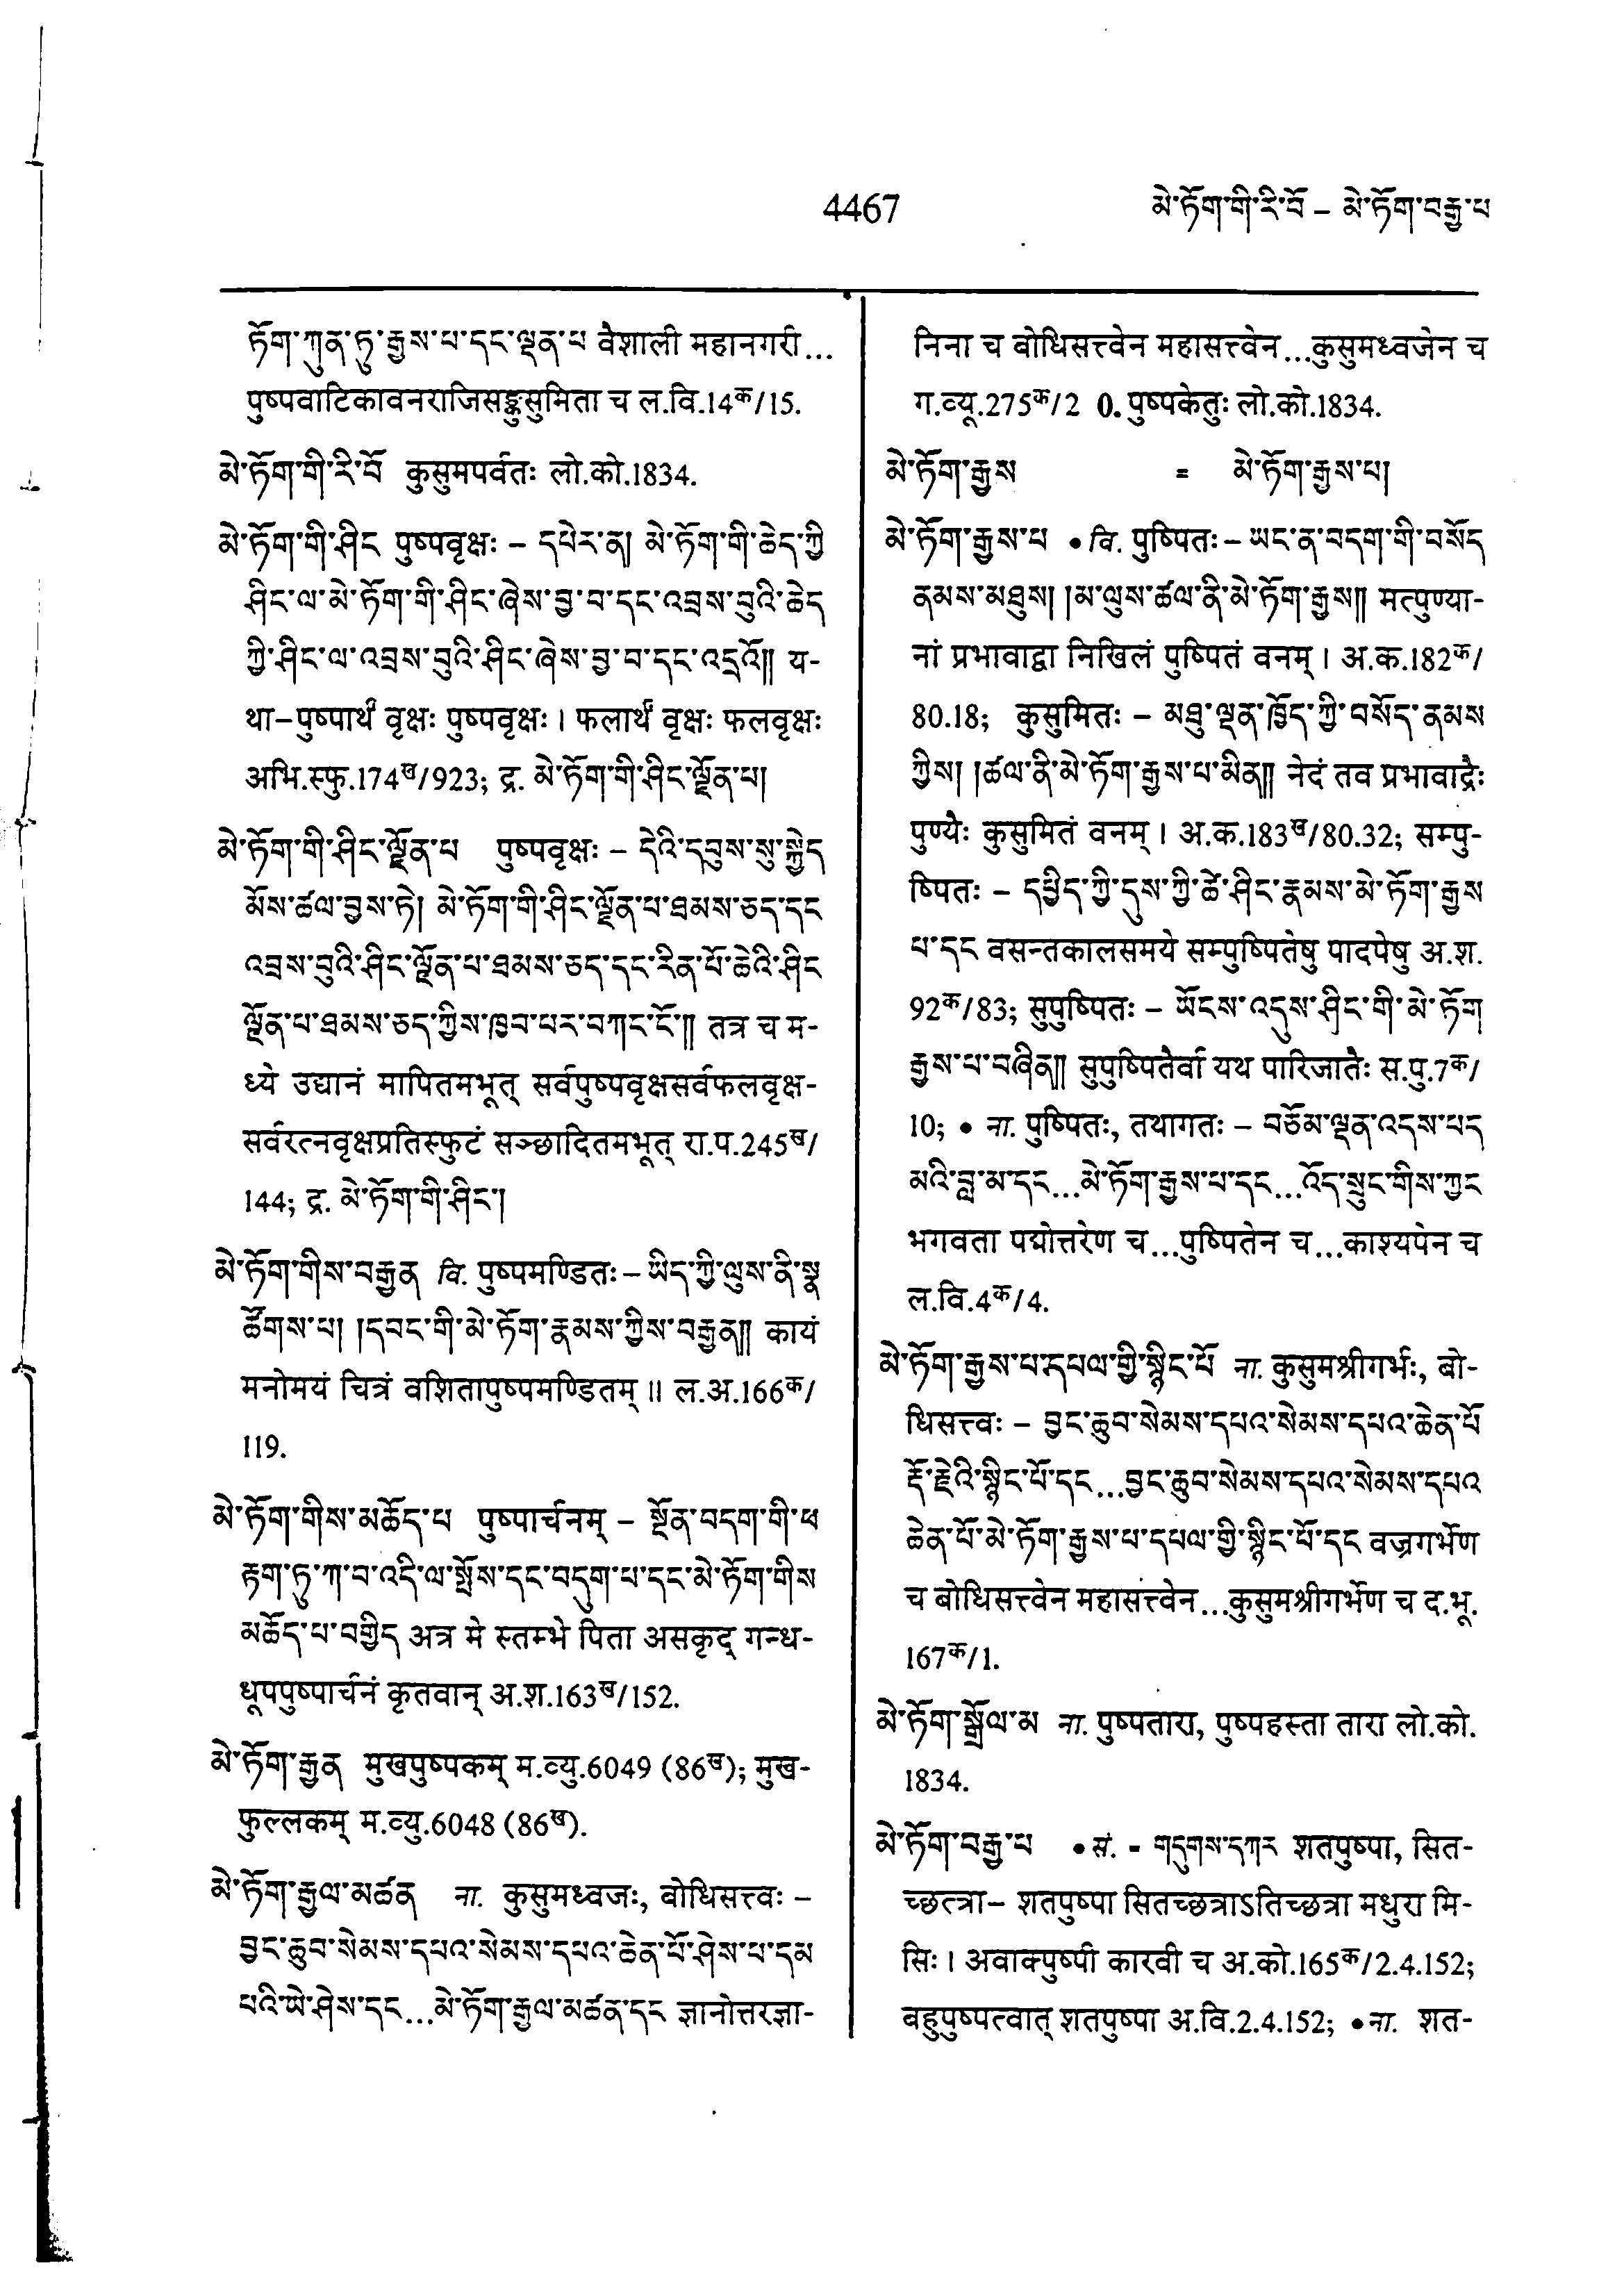 4467
མེ་ཏོག་གི་རི་བོ – མེ་ཏོག་བརྒྱ་པ
ཏོག་ཀུན་ཏུ་རྒྱས་པ་དང་ལྡན་པ वैशाली महानगरी...
पुष्पवाटिकावनराजिसङ्कुसुमिता च ल.वि.14क/15.
མེ་ཏོག་གི་རི་བོ कुसुमपर्वतः लो.को.1834.
མེ་ཏོག་གི་ཤིང पुष्पवृक्षः – དཔེར་ན། མེ་ཏོག་གི་ཆེད་ཀྱི
ཤིང་ལ་མེ་ཏོག་གི་ཤིང་ཞེས་བྱ་བ་དང་འབྲས་བུའི་ཆེད
ཀྱི་ཤིང་ལ་འབྲས་བུའི་ཤིང་ཞེས་བྱ་བ་དང་འདྲའོ།། य-
था–पुष्पार्थं वृक्षः पुष्पवृक्षः । फलार्थं वृक्षः फलवृक्षः
अभि.स्फु.174ख/923; द्र. མེ་ཏོག་གི་ཤིང་ལྗོན་པ།
མེ་ཏོག་གི་ཤིང་ལྗོན་པ पुष्पवृक्षः – དེའི་དབུས་སུ་སྐྱེད
མོས་ཚལ་བྱས་ཏེ། མེ་ཏོག་གི་ཤིང་ལྗོན་པ་ཐམས་ཅད་དང
འབྲས་བུའི་ཤིང་ལྗོན་པ་ཐམས་ཅད་དང་རིན་པོ་ཆེའི་ཤིང
ལྗོན་པ་ཐམས་ཅད་ཀྱིས་ཁྱབ་པར་བཀང་ངོ་།། तत्र च म-
ध्ये उद्यानं मापितमभूत् सर्वपुष्पवृक्षसर्वफलवृक्ष-
सर्वरत्नवृक्षप्रतिस्फुटं सञ्छादितमभूत् रा.प.245ख/
144; द्र. མེ་ཏོག་གི་ཤིང་།
མེ་ཏོག་གིས་བརྒྱན वि. पुष्पमण्डितः – ཡིད་ཀྱི་ལུས་ནི་སྣ
ཚོགས་པ། །དབང་གི་མེ་ཏོག་རྣམས་ཀྱིས་བརྒྱན།། कायं
मनोमयं चित्रं वशितापुष्पमण्डितम् ॥ ल.अ.166क/
119.
མེ་ཏོག་གིས་མཆོད་པ पुष्पार्चनम् – སྔོན་བདག་གི་ཕ
རྟག་ཏུ་ཀ་བ་འདི་ལ་སྤོས་དང་བདུག་པ་དང་མེ་ཏོག་གིས
མཆོད་པ་བགྱིད अत्र मे स्तम्भे पिता असकृद् गन्ध-
धूपपुष्पार्चनं कृतवान् अ.श.163ख/152.
མེ་ཏོག་རྒྱན मुखपुष्पकम् म.व्यु.6049 (86ख); मुख-
फुल्लकम् म.व्यु.6048 (86ख).
མེ་ཏོག་རྒྱལ་མཚན ना. कुसुमध्वजः, बोधिसत्त्वः –
བྱང་ཆུབ་སེམས་དཔའ་སེམས་དཔའ་ཆེན་པོ་ཤེས་པ་དམ
པའི་ཡེ་ཤེས་དང...མེ་ཏོག་རྒྱལ་མཚན་དང ज्ञानोत्तरज्ञा-
निना च बोधिसत्त्वेन महासत्त्वेन...कुसुमध्वजेन च
ग.व्यू.275क/2 0. पुष्पकेतुः लो.को.1834.
མེ་ཏོག་རྒྱས = མེ་ཏོག་རྒྱས་པ།
མེ་ཏོག་རྒྱས་པ • वि. पुष्पितः – ཡང་ན་བདག་གི་བསོད
ནམས་མཐུས། །མ་ལུས་ཚལ་ནི་མེ་ཏོག་རྒྱས།། मत्पुण्या-
नां प्रभावाद्वा निखिलं पुष्पितं वनम् । अ.क.182क/
80.18; कुसुमितः – མཐུ་ལྡན་ཁྱོད་ཀྱི་བསོད་ནམས
ཀྱིས། །ཚལ་ནི་མེ་ཏོག་རྒྱས་པ་མིན།། नेदं तव प्रभावार्द्रैः
पुण्यैः कुसुमितं वनम् । अ.क.183ख/80.32; सम्पु-
ष्पितः – དཔྱིད་ཀྱི་དུས་ཀྱི་ཚེ་ཤིང་རྣམས་མེ་ཏོག་རྒྱས
པ་དང वसन्तकालसमये सम्पुष्पितेषु पादपेषु अ.श.
92क/83; सुपुष्पितः – ཡོངས་འདུས་ཤིང་གི་མེ་ཏོག
རྒྱས་པ་བཞིན།། सुपुष्पितैर्वा यथ पारिजातैः स.पु.7क/
10; • ना. पुष्पितः, तथागतः – བཅོམ་ལྡན་འདས་པད
མའི་བླ་མ་དང...མེ་ཏོག་རྒྱས་པ་དང...འོད་སྲུང་གིས་ཀྱང
भगवता पद्मोत्तरेण च...पुष्पितेन च...काश्यपेन च
ल.वि.4क/4.
མེ་ཏོག་རྒྱས་པ་དཔལ་གྱི་སྙིང་པོ ना. कुसुमश्रीगर्भः, बो-
धिसत्त्वः – བྱང་ཆུབ་སེམས་དཔའ་སེམས་དཔའ་ཆེན་པོ
རྡོ་རྗེའི་སྙིང་པོ་དང...བྱང་ཆུབ་སེམས་དཔའ་སེམས་དཔའ
ཆེན་པོ་མེ་ཏོག་རྒྱས་པ་དཔལ་གྱི་སྙིང་པོ་དང वज्रगर्भेण
च बोधिसत्त्वेन महासत्त्वेन...कुसुमश्रीगर्भेण च द.भू.
167क/1.
མེ་ཏོག་སྒྲོལ་མ ना. पुष्पतारा, पुष्पहस्ता तारा लो.को.
1834.
མེ་ཏོག་བརྒྱ་པ • सं. = གདུགས་དཀར शतपुष्पा, सित-
च्छत्त्रा– शतपुष्पा सितच्छत्राऽतिच्छत्रा मधुरा मि-
सिः । अवाक्पुष्पी कारवी च अ.को.165क/2.4.152;
बहुपुष्पत्वात् शतपुष्पा अ.वि.2.4.152; • ना. शत-